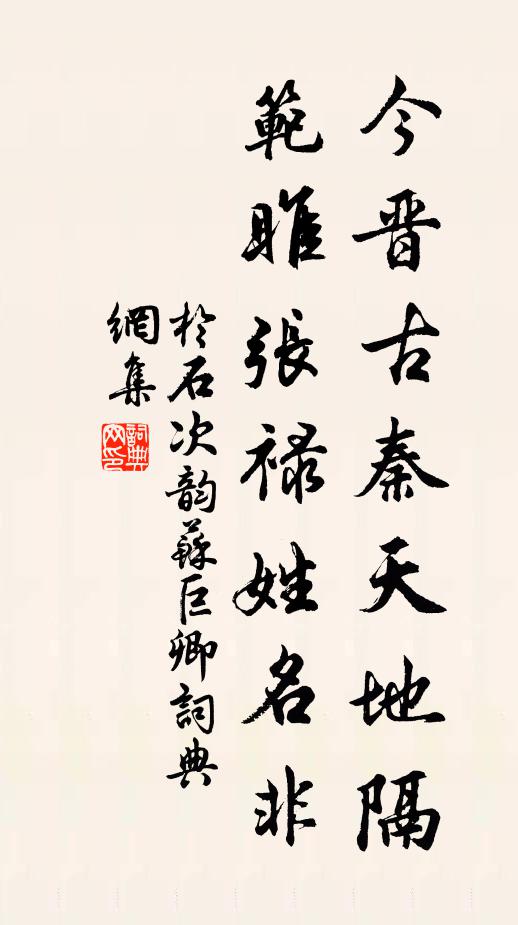 今晋古秦天地隔
範雎張禄姓名非
於石次韵蘇巨卿詞典
網集
詞典
网印